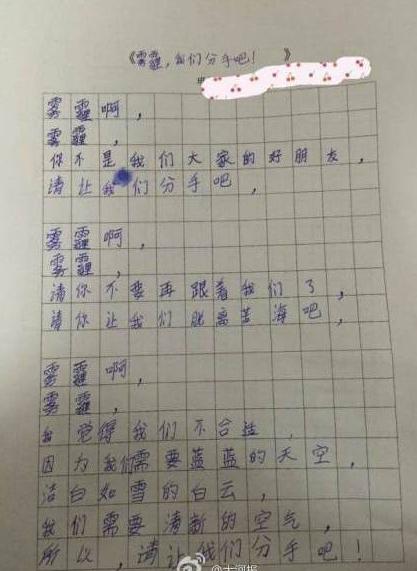 《雾霾，我们分手吧！ 》
雾霾啊，
雾霾，
你不是我们大家的好朋友，
请让我们分手吧，
雾霾啊，
雾霾，
请你不要再跟着我们了，
请你让我们脱离苦海吧，
雾霾啊，
雾霾，
我觉得我们不合适，
因为我们需要蓝蓝的天空，
洁白如雪的白云，
我们需要清新的空气，
所以，请让我们分手吧！
@大河报